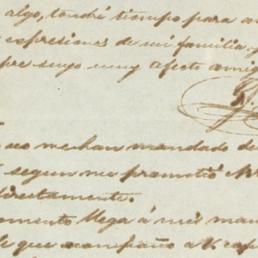 algo, tendré tiempo para
espresiones de mi familia, y
pre suyo muy afecto amig
no me han mandado de
segun me prometió
directamente.
mento llega á mis man
que acompaño a V. cop